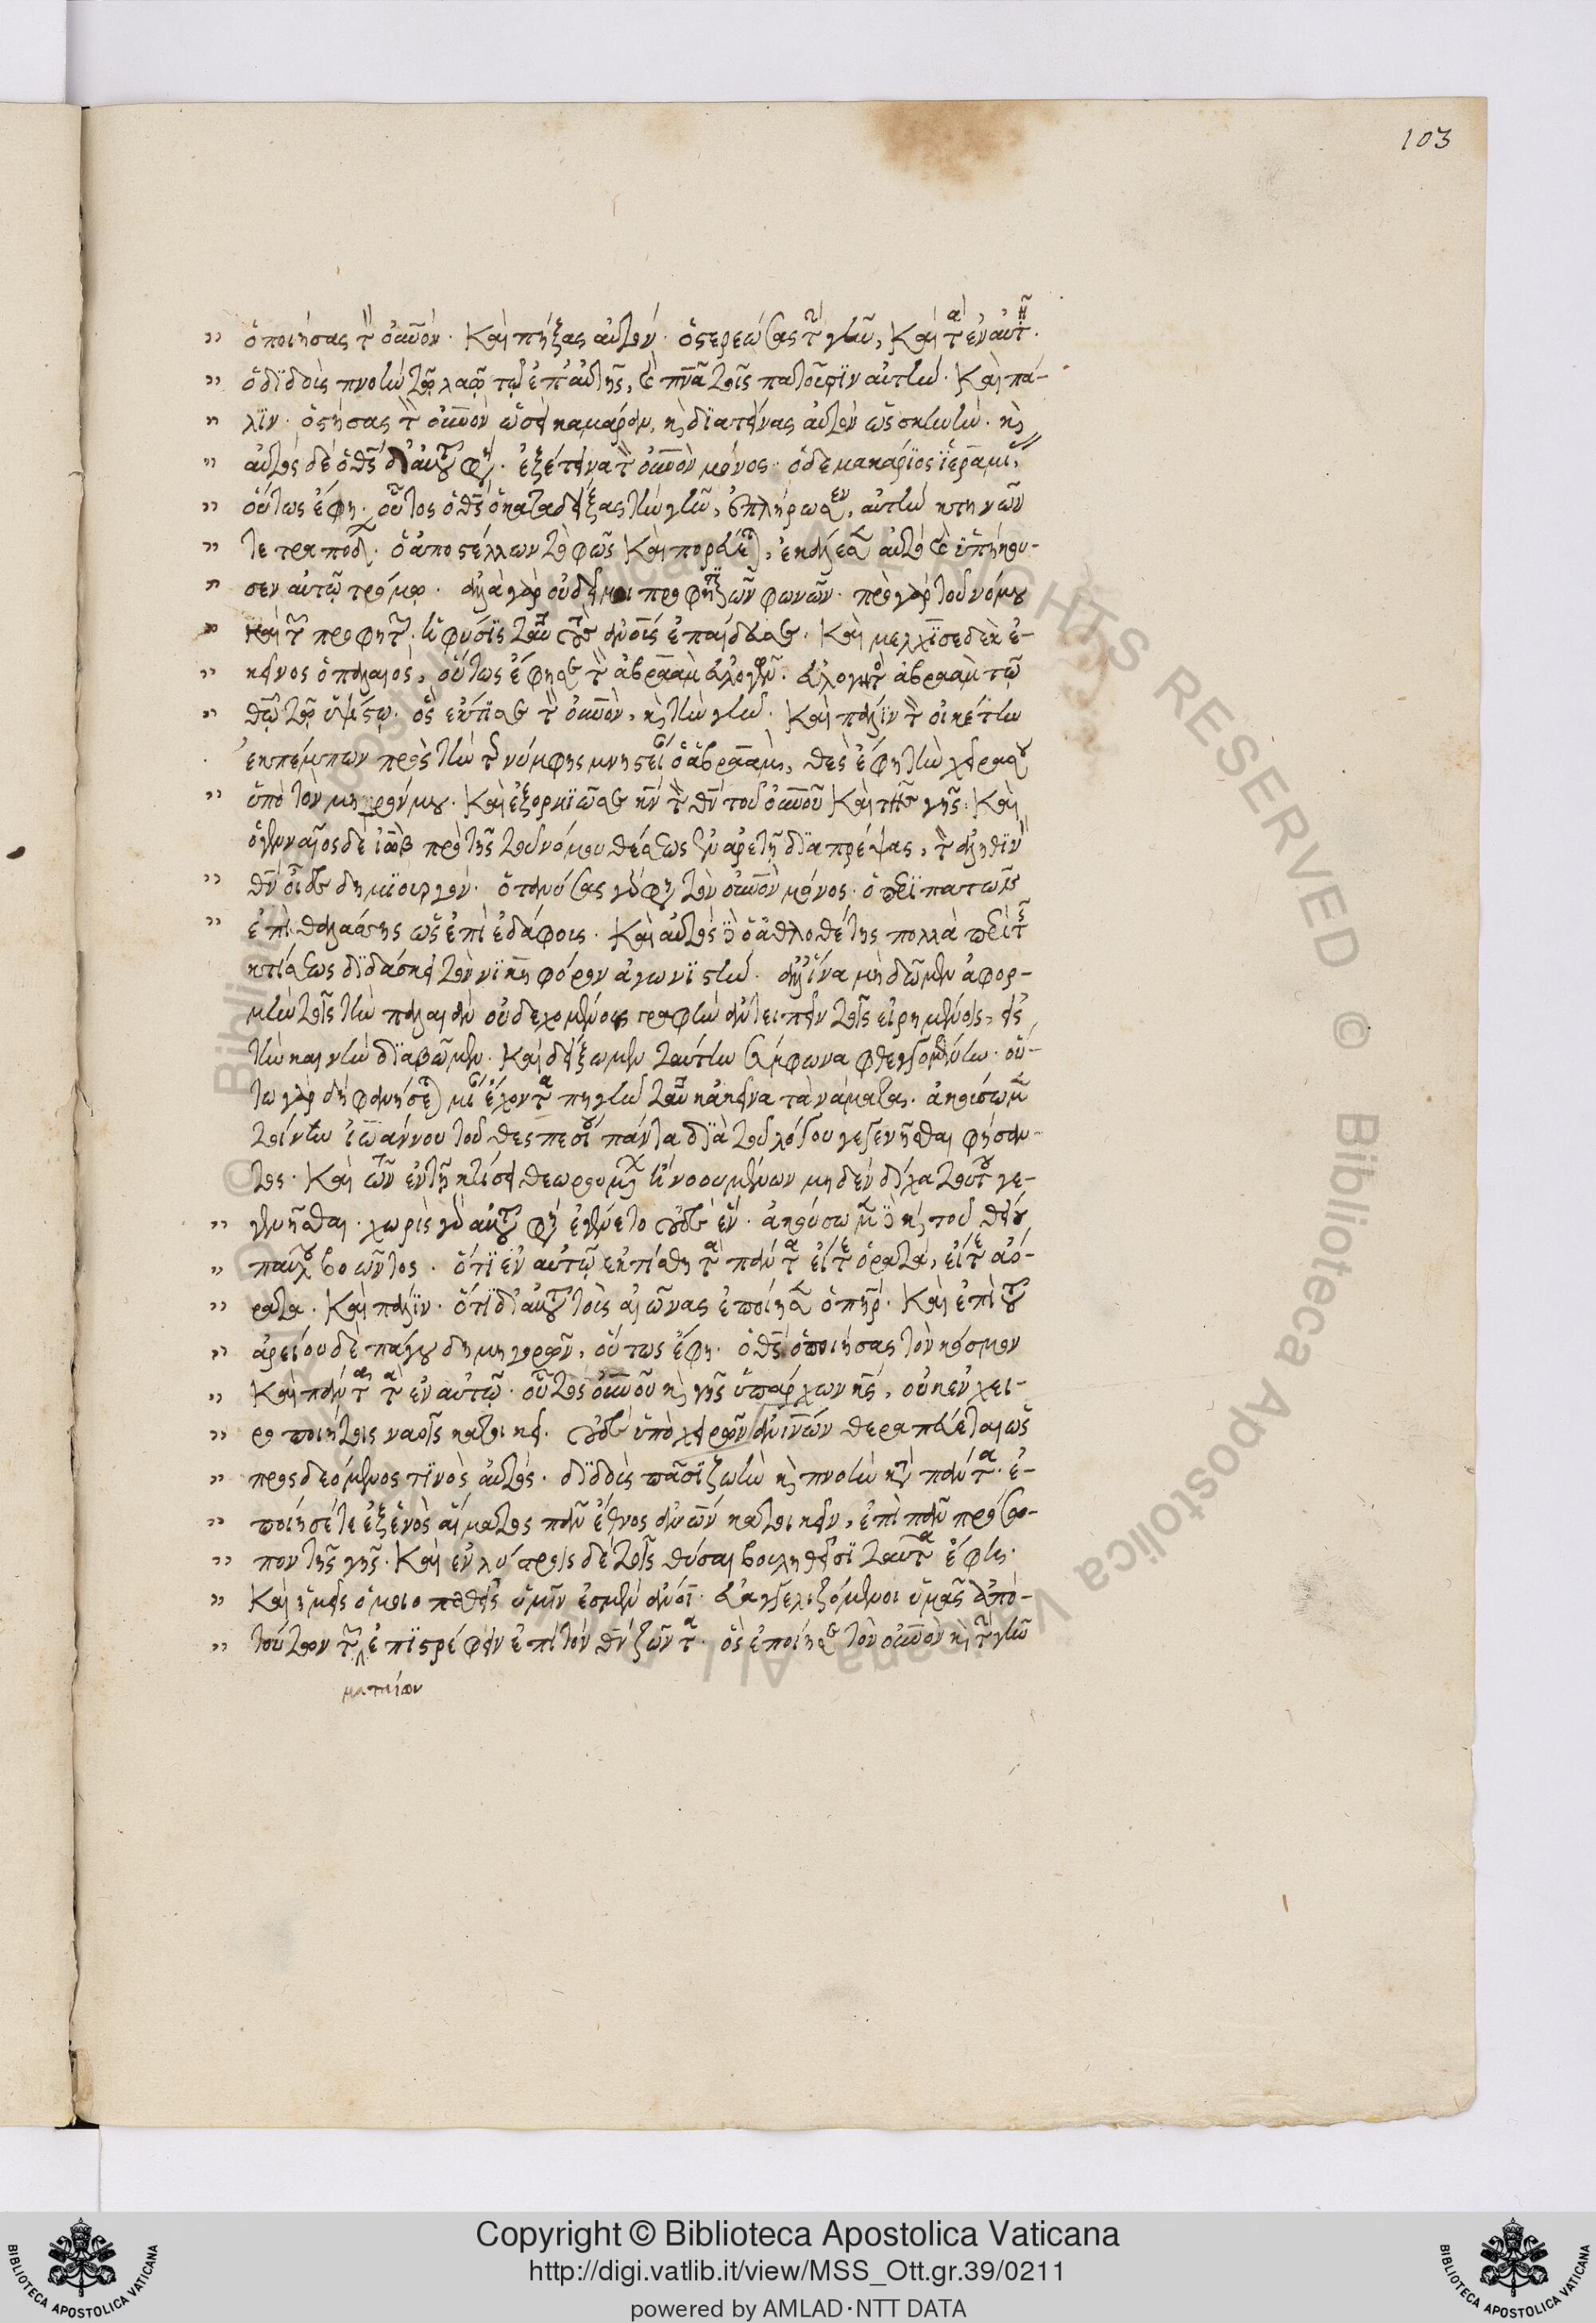 103
ὁ ποιήσας τὸν οὐνὸν. καὶ πήξας αὐτόν. ὁ στερεώσας τὴν γῆν, καὶ τὰ ἐν αὐτῇ.
ὁ διδοὺς πνοὴν τῷ λαῷ τῷ ἐπ' αὐτῆς, καὶ πνα τοῖς πατοῦσϊν αὐτήν. καὶ πά-
λϊν. ὁ στήσας τὸν οὐνὸν ὡσεὶ καμάραν, καὶ δϊατείνας αὐτὸν ὡς σκηνήν. καὶ
αὐτὸς δὲ ὁ θς δι' αὐτοῦ φη. ἐξέτεινα τὸν οὐνὸν μόνος. ὁ δὲ μακάρϊος ϊερεμί
οὕτως ἔφη. οὗτος ὁ θς ὁ κατα τὴν γῆν, ἐπλήρωσεν, αὐτὴν κτηνῶν
τετραπόδων. ὁ ἀποστέλλων τὸ φῶς καὶ πορεύεται, ἐκάλεσεν αὐτὸ καὶ ὑπήκου-
σεν αὐτῷ τρόμῳ. πρὸ γὰρ τοῦ νόμου
καὶ τῶν προφητῶν. ἡ φύσϊς ταῦτα τοὺς ἀνοὺς ἐπαίδευσε. καὶ μελχϊσεδὲκ ἐ-
κεῖνος ὁ πάλαιος, οὕτως ἔφησε τὸν ἀβραὰμ εὐλογῶν. εὐλογητὸς ἀβραὰμ τῷ
θῷ τῷ ὑψίστῳ. ὃς ἔκτϊσε τὸν οὐνὸν, καὶ τὴν γῆν. καὶ πάλϊν τὸν οἰκέτην
ἐκπέμπων πρὸς τὴν τῆς νύμφης μνηστείαν ὁ ἀβραὰμ, θὲς ἔφη τὴν χεῖρα σου
ὑπὸ τὸν μηρόν μου. καὶ ἐξορκϊῶ σε κν τὸν θν τοῦ οὐνοῦ καὶ τῆς γῆς. καὶ
ὁ γενναῖος δὲ ἰὼβ πρὸ τῆς τοῦ νόμου θέσεως ἐν ἀρετῇ δϊαπρέψας, τὸν ἀληθϊνὸν
θν οἶδε δημϊουργόν. ὁ τανύσας γὰρ φη τὸν οὐνὸν μόνος. ὁ περϊπατῶν
ἐπὶ θαλάσσης ὡς ἐπὶ ἐδάφους. καὶ αὐτὸς δὲ ὁ ἀθλοθέτης πολλὰ περὶ τῆς
κτίσεως δϊδάσκει τὸν νϊκηφόρον ἀγωνϊστήν. ἀλλ' ἵνα μὴ δῶμεν ἀφορ-
μὴν τοῖς τὴν παλαιὰν οὐ δεχομένοις γραφὴν ἀντειπεῖν τοῖς εἰρημένοις, εἰς
τὴν καινὴν δϊαβῶμεν. καὶ δείξωμεν ταύτην σύμφωνα φθεγγομένην. οὕ-
τω γὰρ δὴ φανήσεται μίαν ἔχοντα πηγὴν ταῦτα κἀκεῖνα τὰ νάματα. ἀκούσωμεν
τοίνυν ἰωάννου τοῦ θεσπεσίου πάντα δϊὰ τοῦ λόγου γεγενῆσθαι φήσαν-
τος. καὶ τῶν ἐν τῇ κτίσει θεωρουμένων ἢ νοουμένων μηδὲν δίχα τούτου γε-
γενῆσθαι. χωρὶς γὰρ αὐτοῦ φη ἐγένετο οὐδὲ ἕν. ἀκούσωμεν δὲ καὶ τοῦ θείου
παύλου βοῶντος. ὅτϊ ἐν αὐτῷ ἐκτίσθη τὰ πάντα εἴτε ὁρατὰ, εἴτε ἀό-
ρατα. καὶ πάλϊν. ὅτϊ δι' αὐτοῦ τοὺς αἰῶνας ἐποίησεν ὁ πηρ. καὶ ἐπὶ τοῦ
ἀρείου δὲ πάγου δημηγορῶν, οὕτως ἔφη. ὁ θς ὁ ποιήσας τὸν κόσμον
καὶ πάντα τὰ ἐν αὐτῷ. οὗτος οὐνοῦ καὶ γῆς ὑπάρχων κς, οὐκ ἐν χει-
ροποιήτοις ναοῖς κατοικεῖ. οὐδὲ ὑπὸ χειρῶν ἀνίνων θεραπεύεται ὡς
προσδεόμενος τϊνὸς αὐτὸς. δϊδοὺς πᾶσϊ ζωὴν καὶ πνοὴν κατὰ πάντα. ἐ-
ποίησέ τε ἐξ ἑνὸς αἵματος πᾶν ἔθνος ἀνων κατοικεῖν, ἐπὶ πᾶν πρόσω-
πον τῆς γῆς. καὶ ἐν λύστροις δὲ τοῖς θῦσαι βουληθεῖσϊ ταῦτα ἔφη.
καὶ ἡμεῖς ὁμοιοπαθεῖς ὑμῖν ἐσμὲν ἀνοι. εὐαγγελιζόμενοι ὑμᾶς ἀπὸ
τούτων τῶν ἐπϊστρέφειν ἐπὶ τὸν θν ζῶντα. ὃς ἐποίησε τὸν οὐνὸν καὶ τὴν γῆν
ματαίων
Copyright © Biblioteca Apostolica Vaticana
http://digi.vatlib.it/view/MSS_Ott.gr.39/0211
powered by AMLAD·NTT DATA